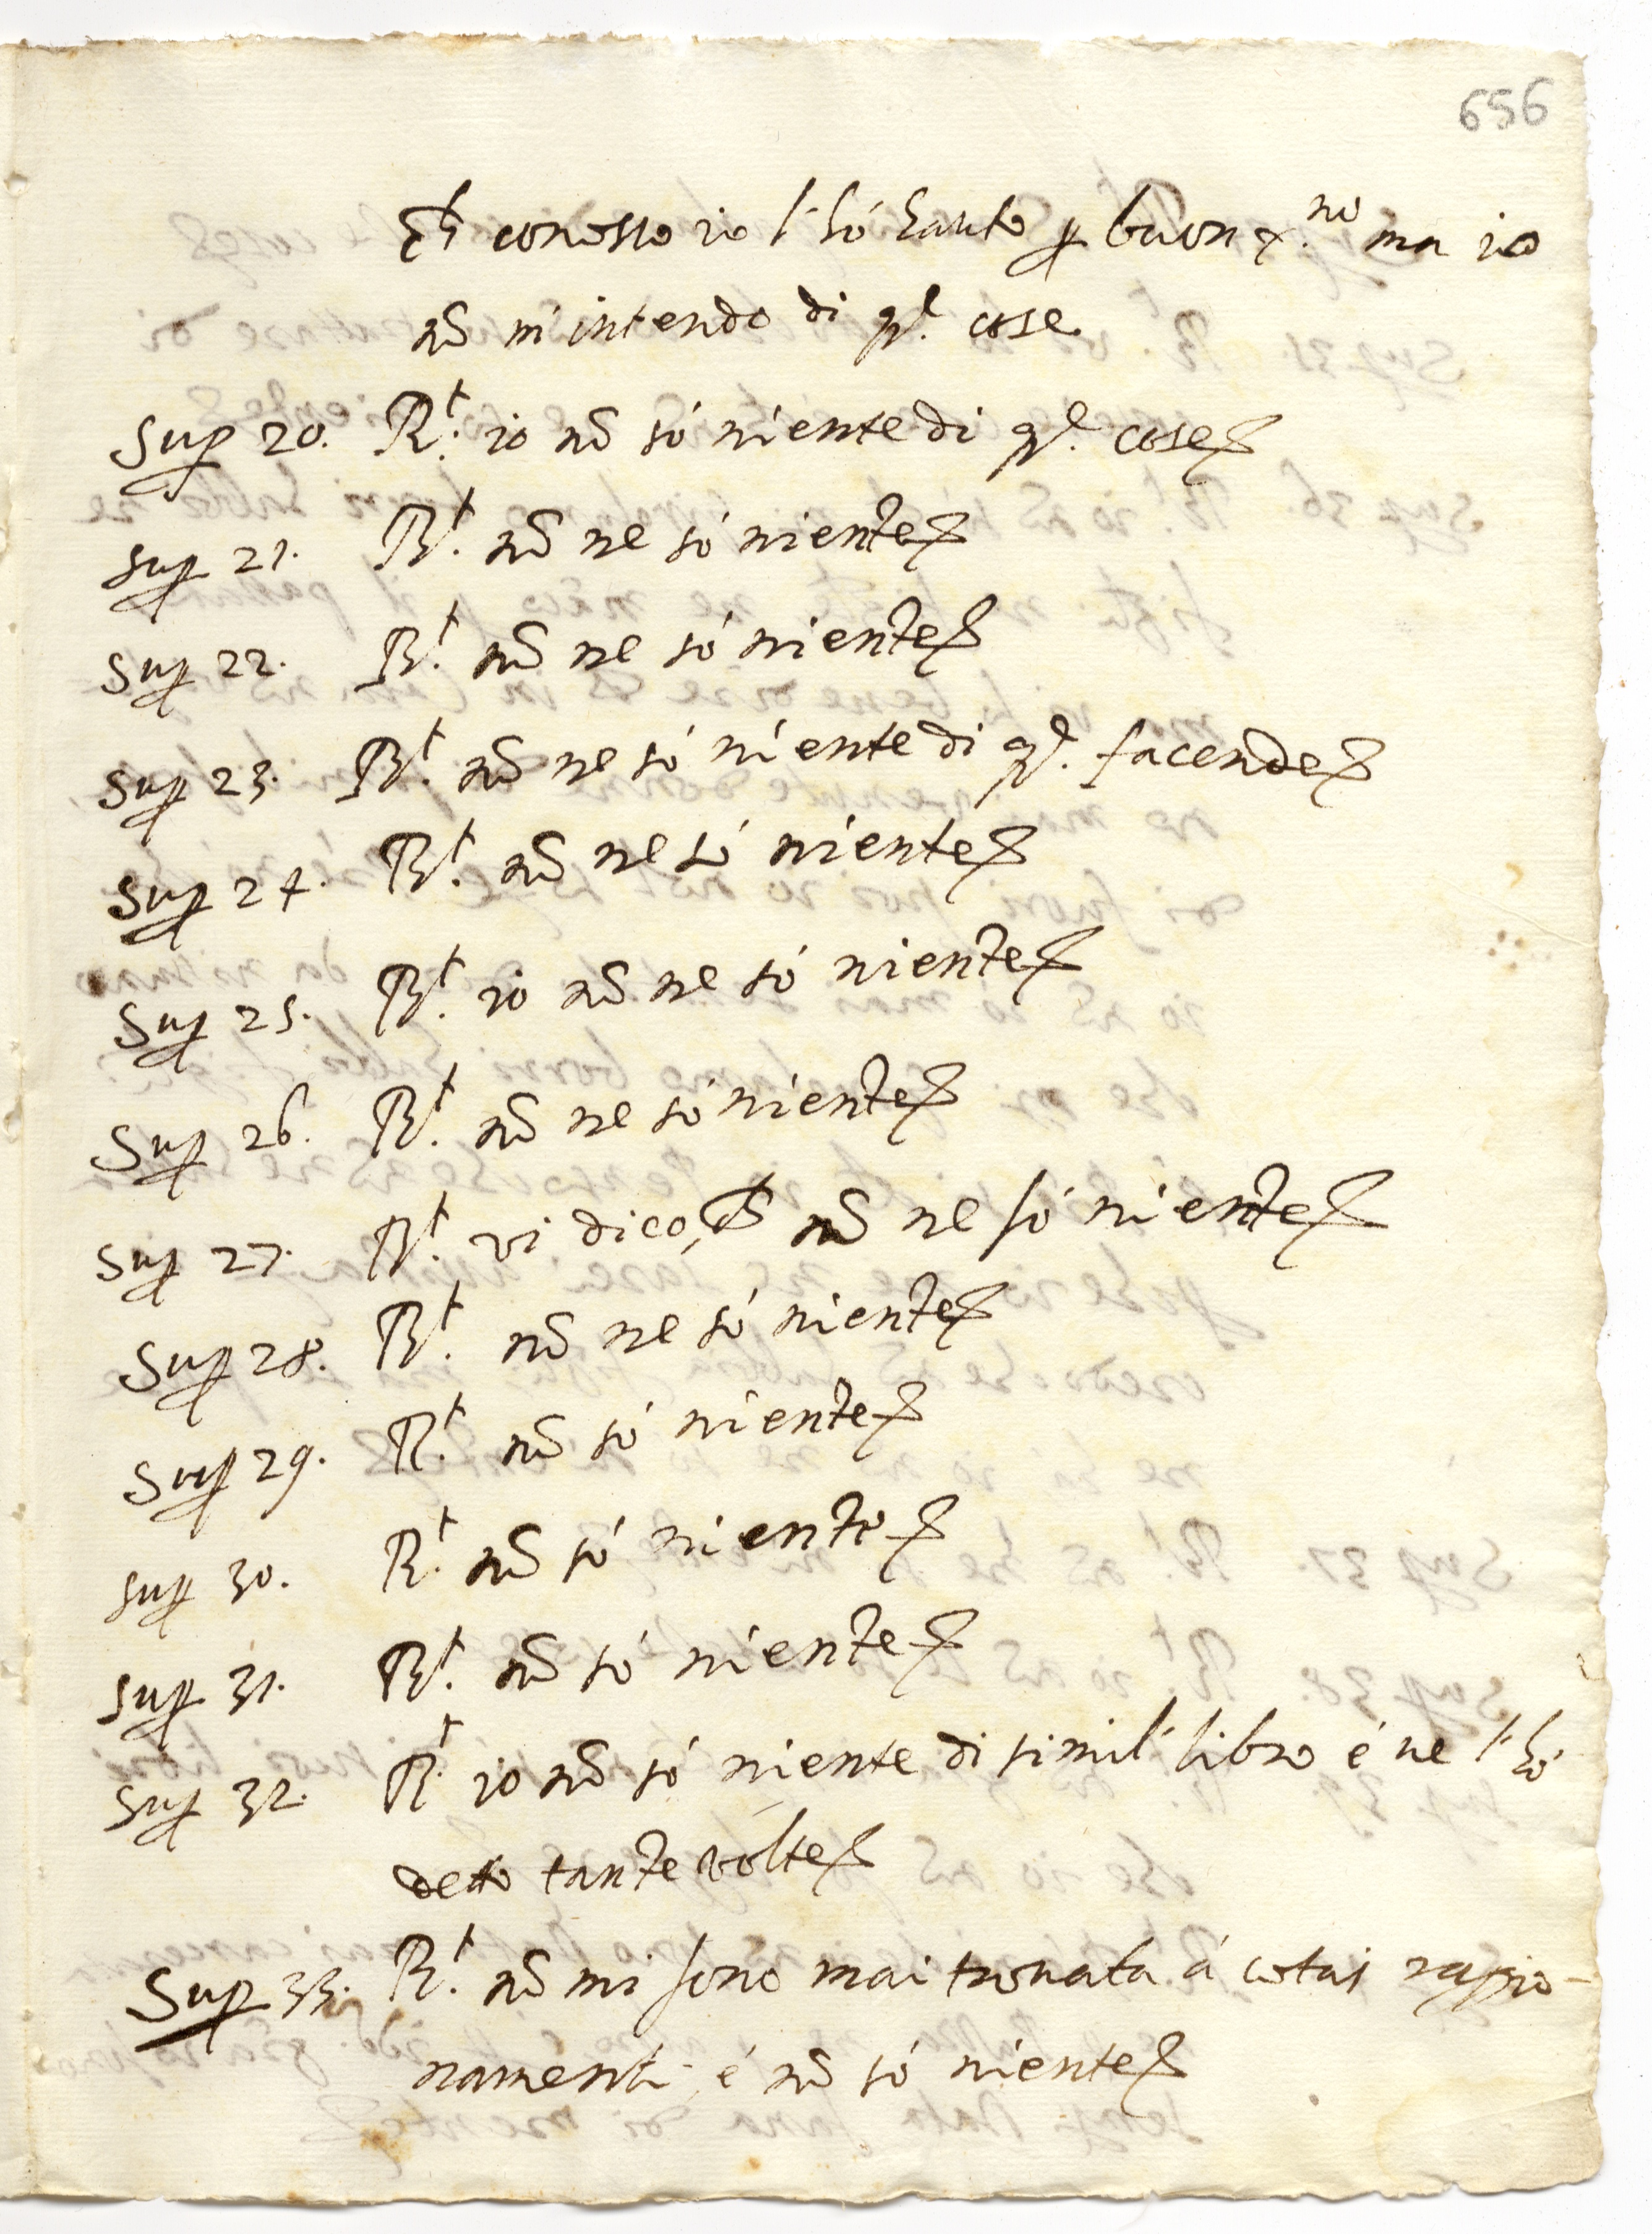 656
ch̃ conosco io l'hó hauto ꝑ buon x.no ma io
nõ m'intendo di qˡ. cose
Supꝑ 20. Rt. io nõ só niente di qˡ. cose
Supꝑ 21. Rt. nõ ne só niente
Supꝑ 22. Rt. nõ ne só niente
Supꝑ 23. Rt. nõ ne só niente di qˡ. facende
Supꝑ 24. Rt. nõ ne só niente
Supꝑ 25. Rt. io nõ ne só niente
Supꝑ 26. Rt. nõ ne só niente
Supꝑ 27. Rt. vi dico, ch̃ nõ ne só niente
Supꝑ 28. Rt. nõ ne só niente
Supꝑ 29. Rt. nõ só niente
Supꝑ 30. Rt. nõ só niente
Supꝑ 31. Rt. nõ só niente
Supꝑ 32. Rt. io nõ só niente di simil' libro é ve l'hó
detto tante volte
Supꝑ 33. Rt. nõ mi sono mai trovata á cotai raggio-
namenti, é nõ só niente